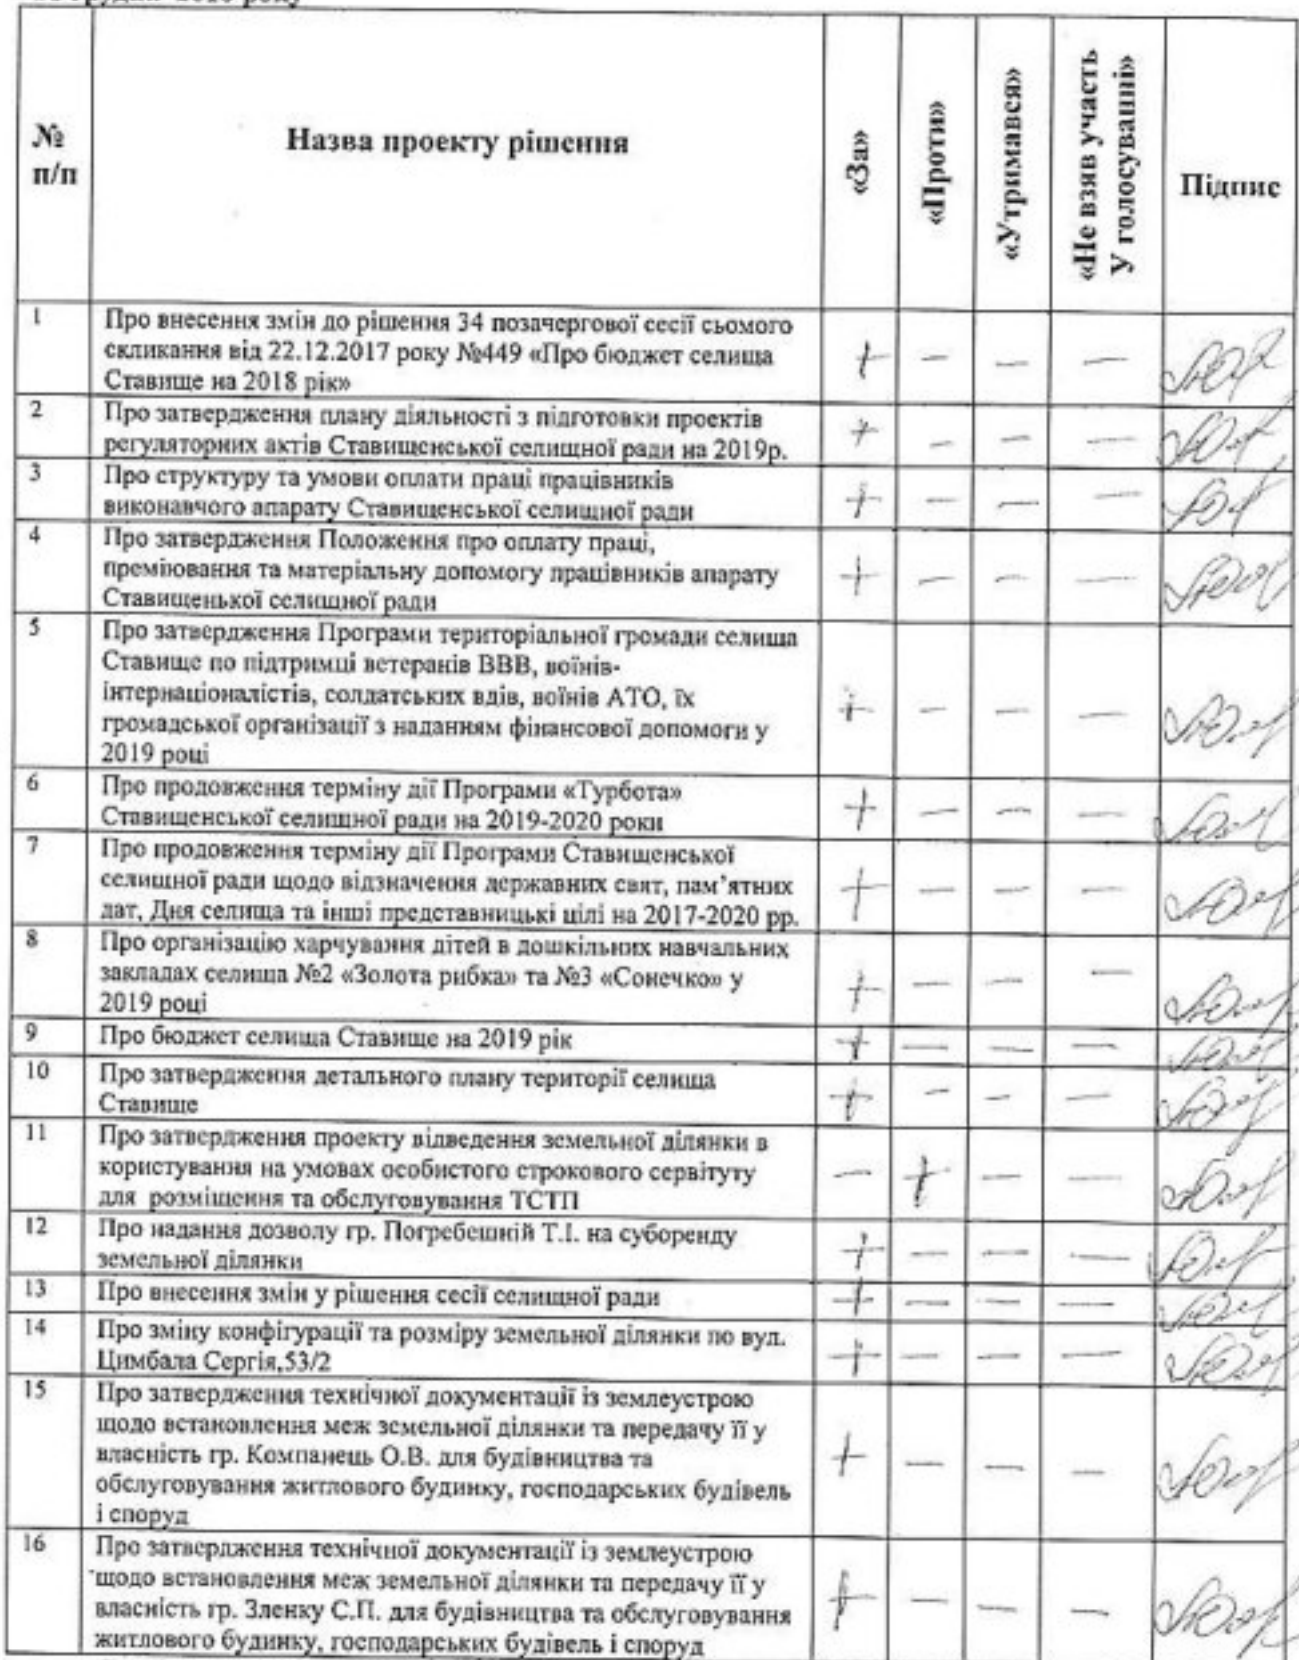 року
№ п/п Назва проекту рішення «За» «Проти» «Утримався» «Не взяв участь У голосуванні» Підпис
1 Про внесення змін до рішення 34 позачергової сесії сьомого
скликання від 22.12.2017 року №449 «Про бюджет селища
Ставище на 2018 рік»
+ — — —
2 Про затвердження плану діяльності з підготовки проектів
регуляторних актів Ставищенської селищної ради на 2019р.
+ — — —
3 Про структуру та умови оплати праці працівників
виконавчого апарату Ставищенської селищної ради
+ — — —
4 Про затвердження Положення про оплату праці,
преміювання та матеріальну допомогу працівників апарату
Ставищенької селищної ради
+ — — —
5 Про затвердження Програми територіальної громади селища
Ставище по підтримці ветеранів ВВВ, воїнів-
інтернаціоналістів, солдатських вдів, воїнів АТО, їх
громадської організації з наданням фінансової допомоги у
2019 році
+ — — —
6 Про продовження терміну дії Програми «Турбота»
Ставищенської селищної ради на 2019-2020 роки
+ — — —
7 Про продовження терміну дії Програми Ставищенської
селищної ради щодо відзначення державних свят, пам’ятних
дат, Дня селища та інші представницькі цілі на 2017-2020 рр.
+ — — —
8 Про організацію харчування дітей в дошкільних навчальних
закладах селища №2 «Золота рибка» та №3 «Сонечко» у
2019 році
+ — — —
9 Про бюджет селища Ставище на 2019 рік
+ — — —
10 Про затвердження детального плану території селища
Ставище
+ — — —
11 Про затвердження проекту відведення земельної ділянки в
користування на умовах особистого строкового сервітуту
для розміщення та обслуговування ТСТП
— + — —
12 Про надання дозволу гр. Погребешній Т.І. на суборенду
земельної ділянки
+ — — —
13 Про внесення змін у рішення сесії селищної ради
+ — — —
14 Про зміну конфігурації та розміру земельної ділянки по вул.
Цимбала Сергія,53/2
+ — — —
15 Про затвердження технічної документації із землеустрою
щодо встановлення меж земельної ділянки та передачу її у
власність гр. Компанець О.В. для будівництва та
обслуговування житлового будинку, господарських будівель
і споруд
+ — — —
16 Про затвердження технічної документації із землеустрою
щодо встановлення меж земельної ділянки та передачу її у
власність гр. Зленку С.П. для будівництва та обслуговування
житлового будинку, господарських будівель і споруд
+ — — —